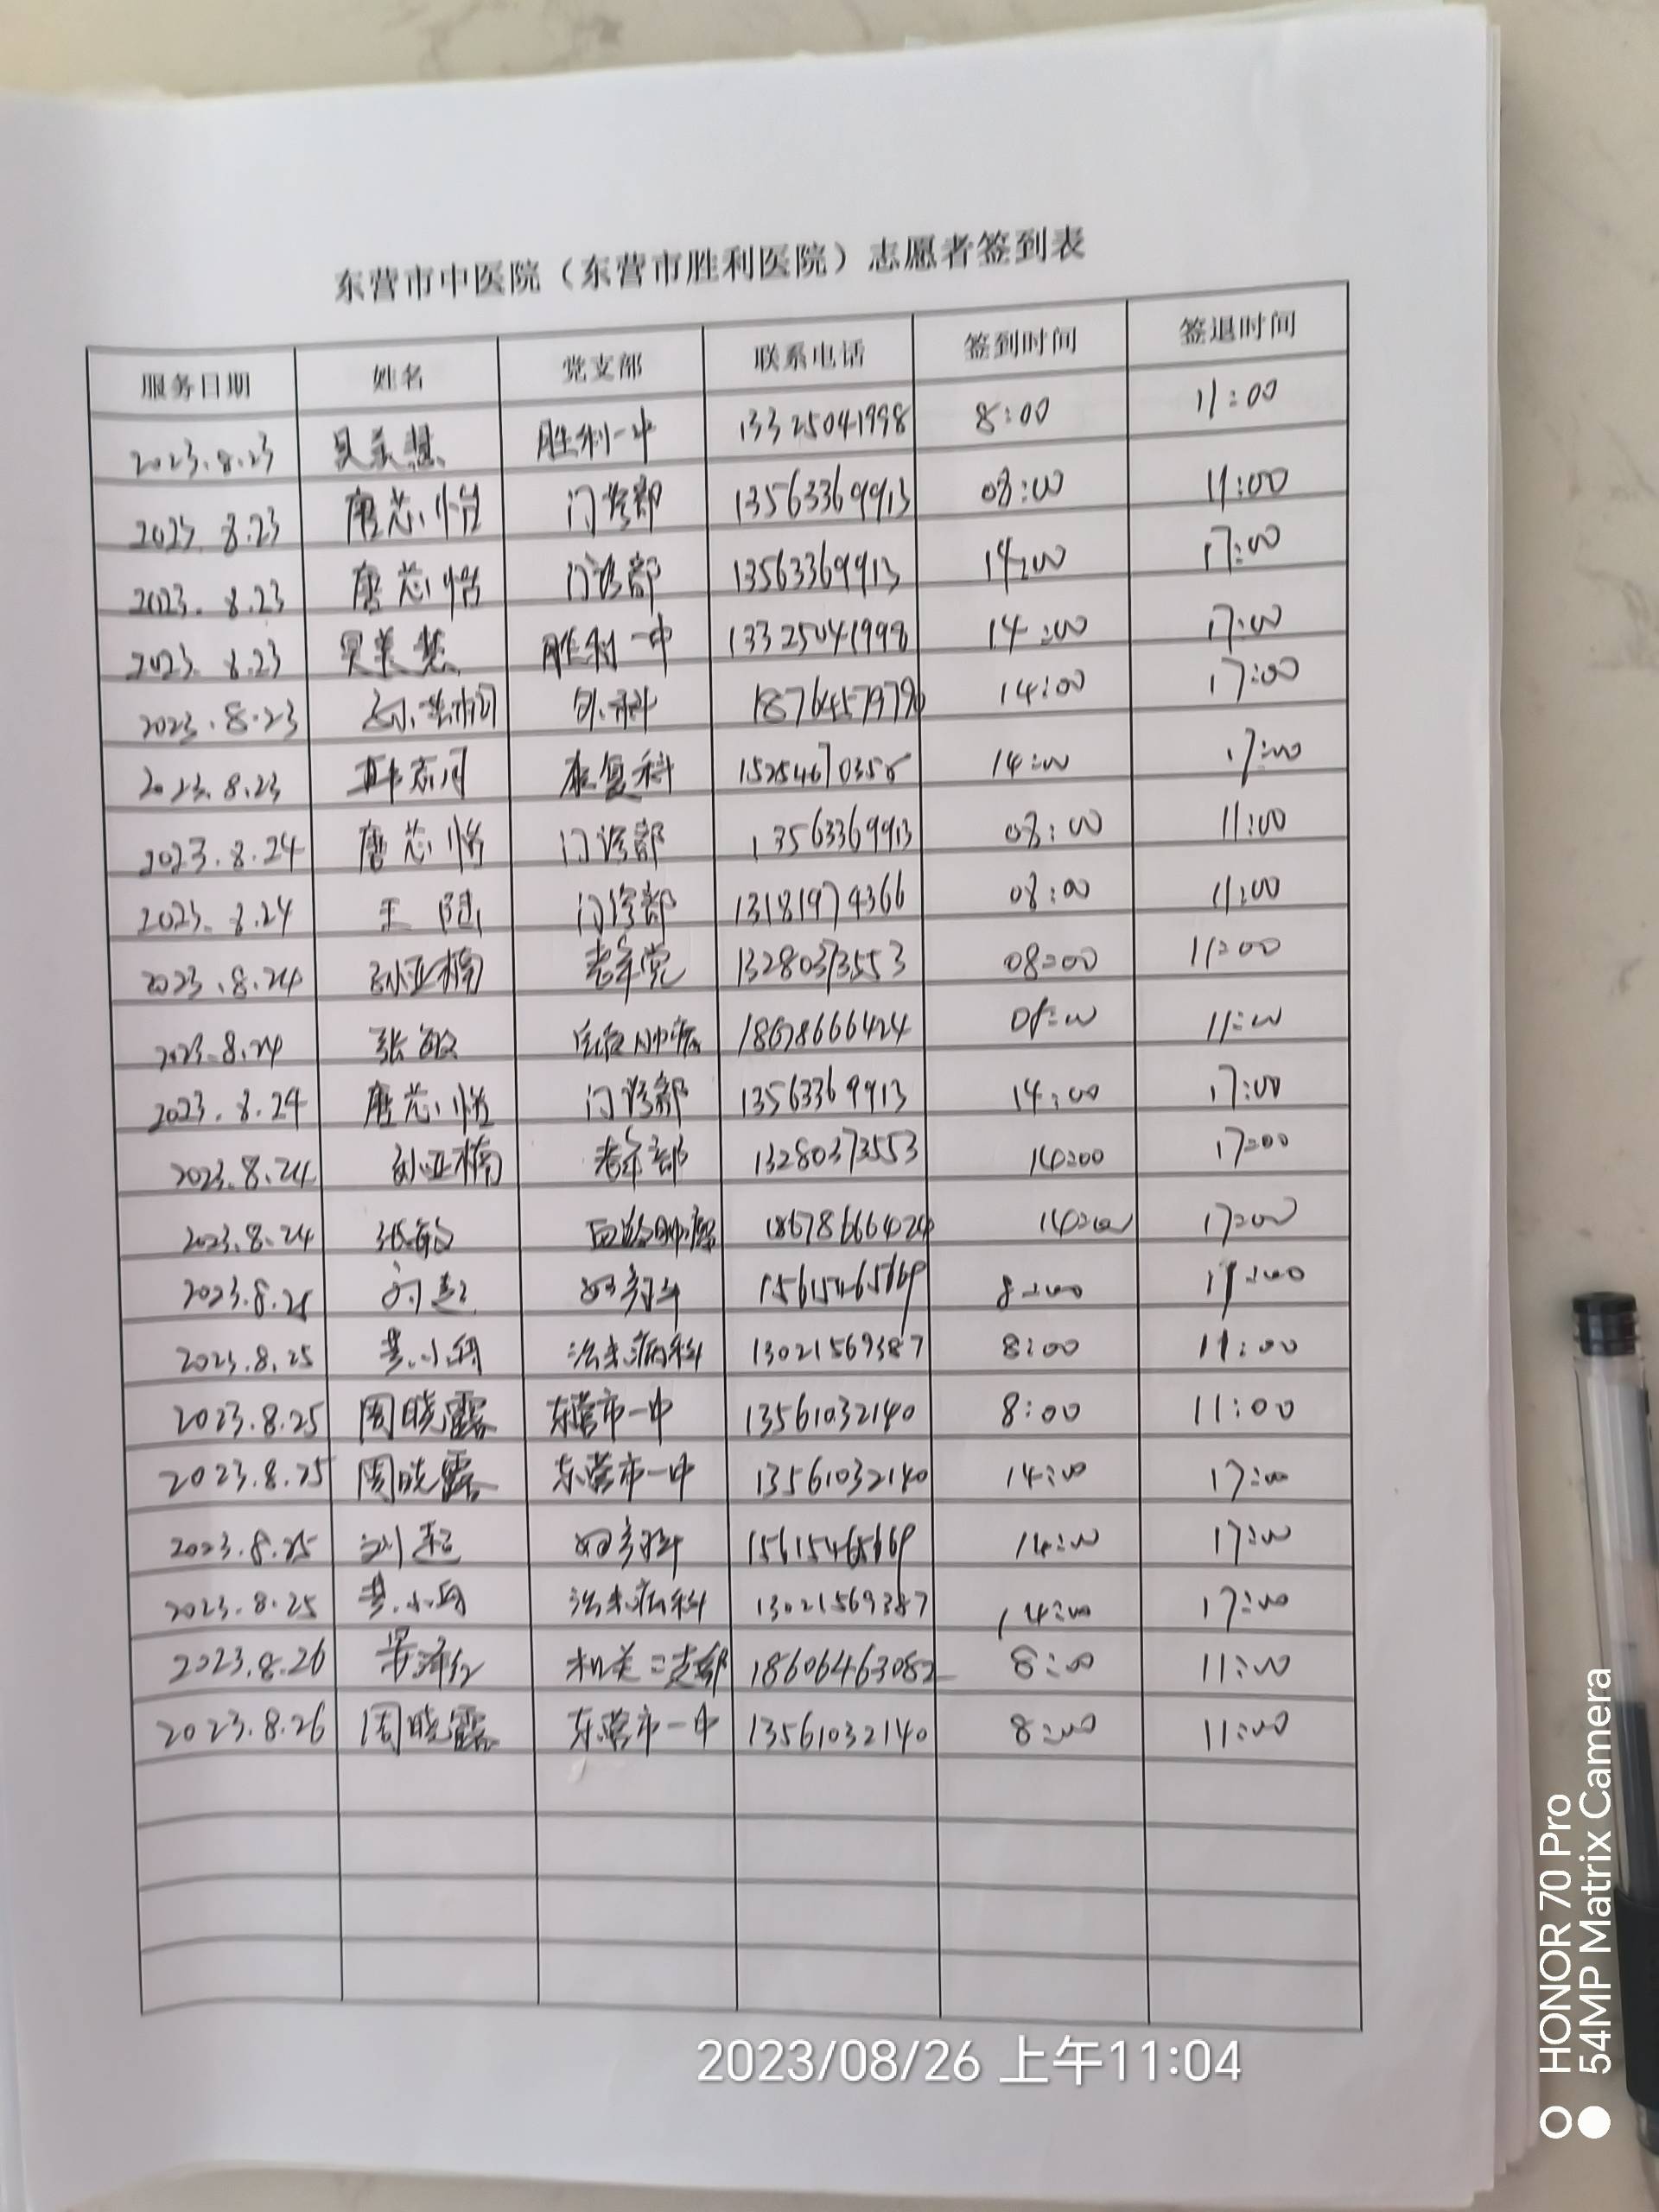 东营市中医院（东营市胜利医院）志愿者签到表
服务日期 姓名 党支部 联系电话 签到时间 签退时间
2023.8.23 吴美慧 胜利一中 13325041998 8:00 11:00
2023.8.23 唐芯怡 门诊部 13563369913 08:00 11:00
2023.8.23 唐芯怡 门诊部 13563369913 14:00 17:00
2023.8.23 吴美慧 胜利一中 13325041998 14:00 17:00
2023.8.23 外科 14:00 17:00
2023.8.23 康复科 14:00 17:00
2023.8.24 唐芯怡 门诊部 13563369913 08:00 11:00
2023.8.24 王 门诊部 13181974366 08:00 11:00
2023.8.24 孙亚楠 老年党 13280373553 08:00 11:00
2023.8.24 张敏 18678666424 08:00 11:00
2023.8.24 唐芯怡 门诊部 13563369913 14:00 17:00
2023.8.24 孙亚楠 老年部 13280373553 14:00 17:00
2023.8.24 张敏 18678666424 14:00 17:00
2023.8.25 刘超 15615465669 8:00 11:00
2023.8.25 治未病科 13021569387 8:00 11:00
2023.8.25 周晓露 东营市一中 13561032140 8:00 11:00
2023.8.25 周晓露 东营市一中 13561032140 14:00 17:00
2023.8.25 刘超 15615465669 14:00 17:00
2023.8.25 治未病科 13021569387 14:00 17:00
2023.8.26 机关二支部 18606463082 8:00 11:00
2023.8.26 周晓露 东营市一中 13561032140 8:00 11:00
2023/08/26 上午11:04
HONOR 70 Pro
54MP Matrix Camera